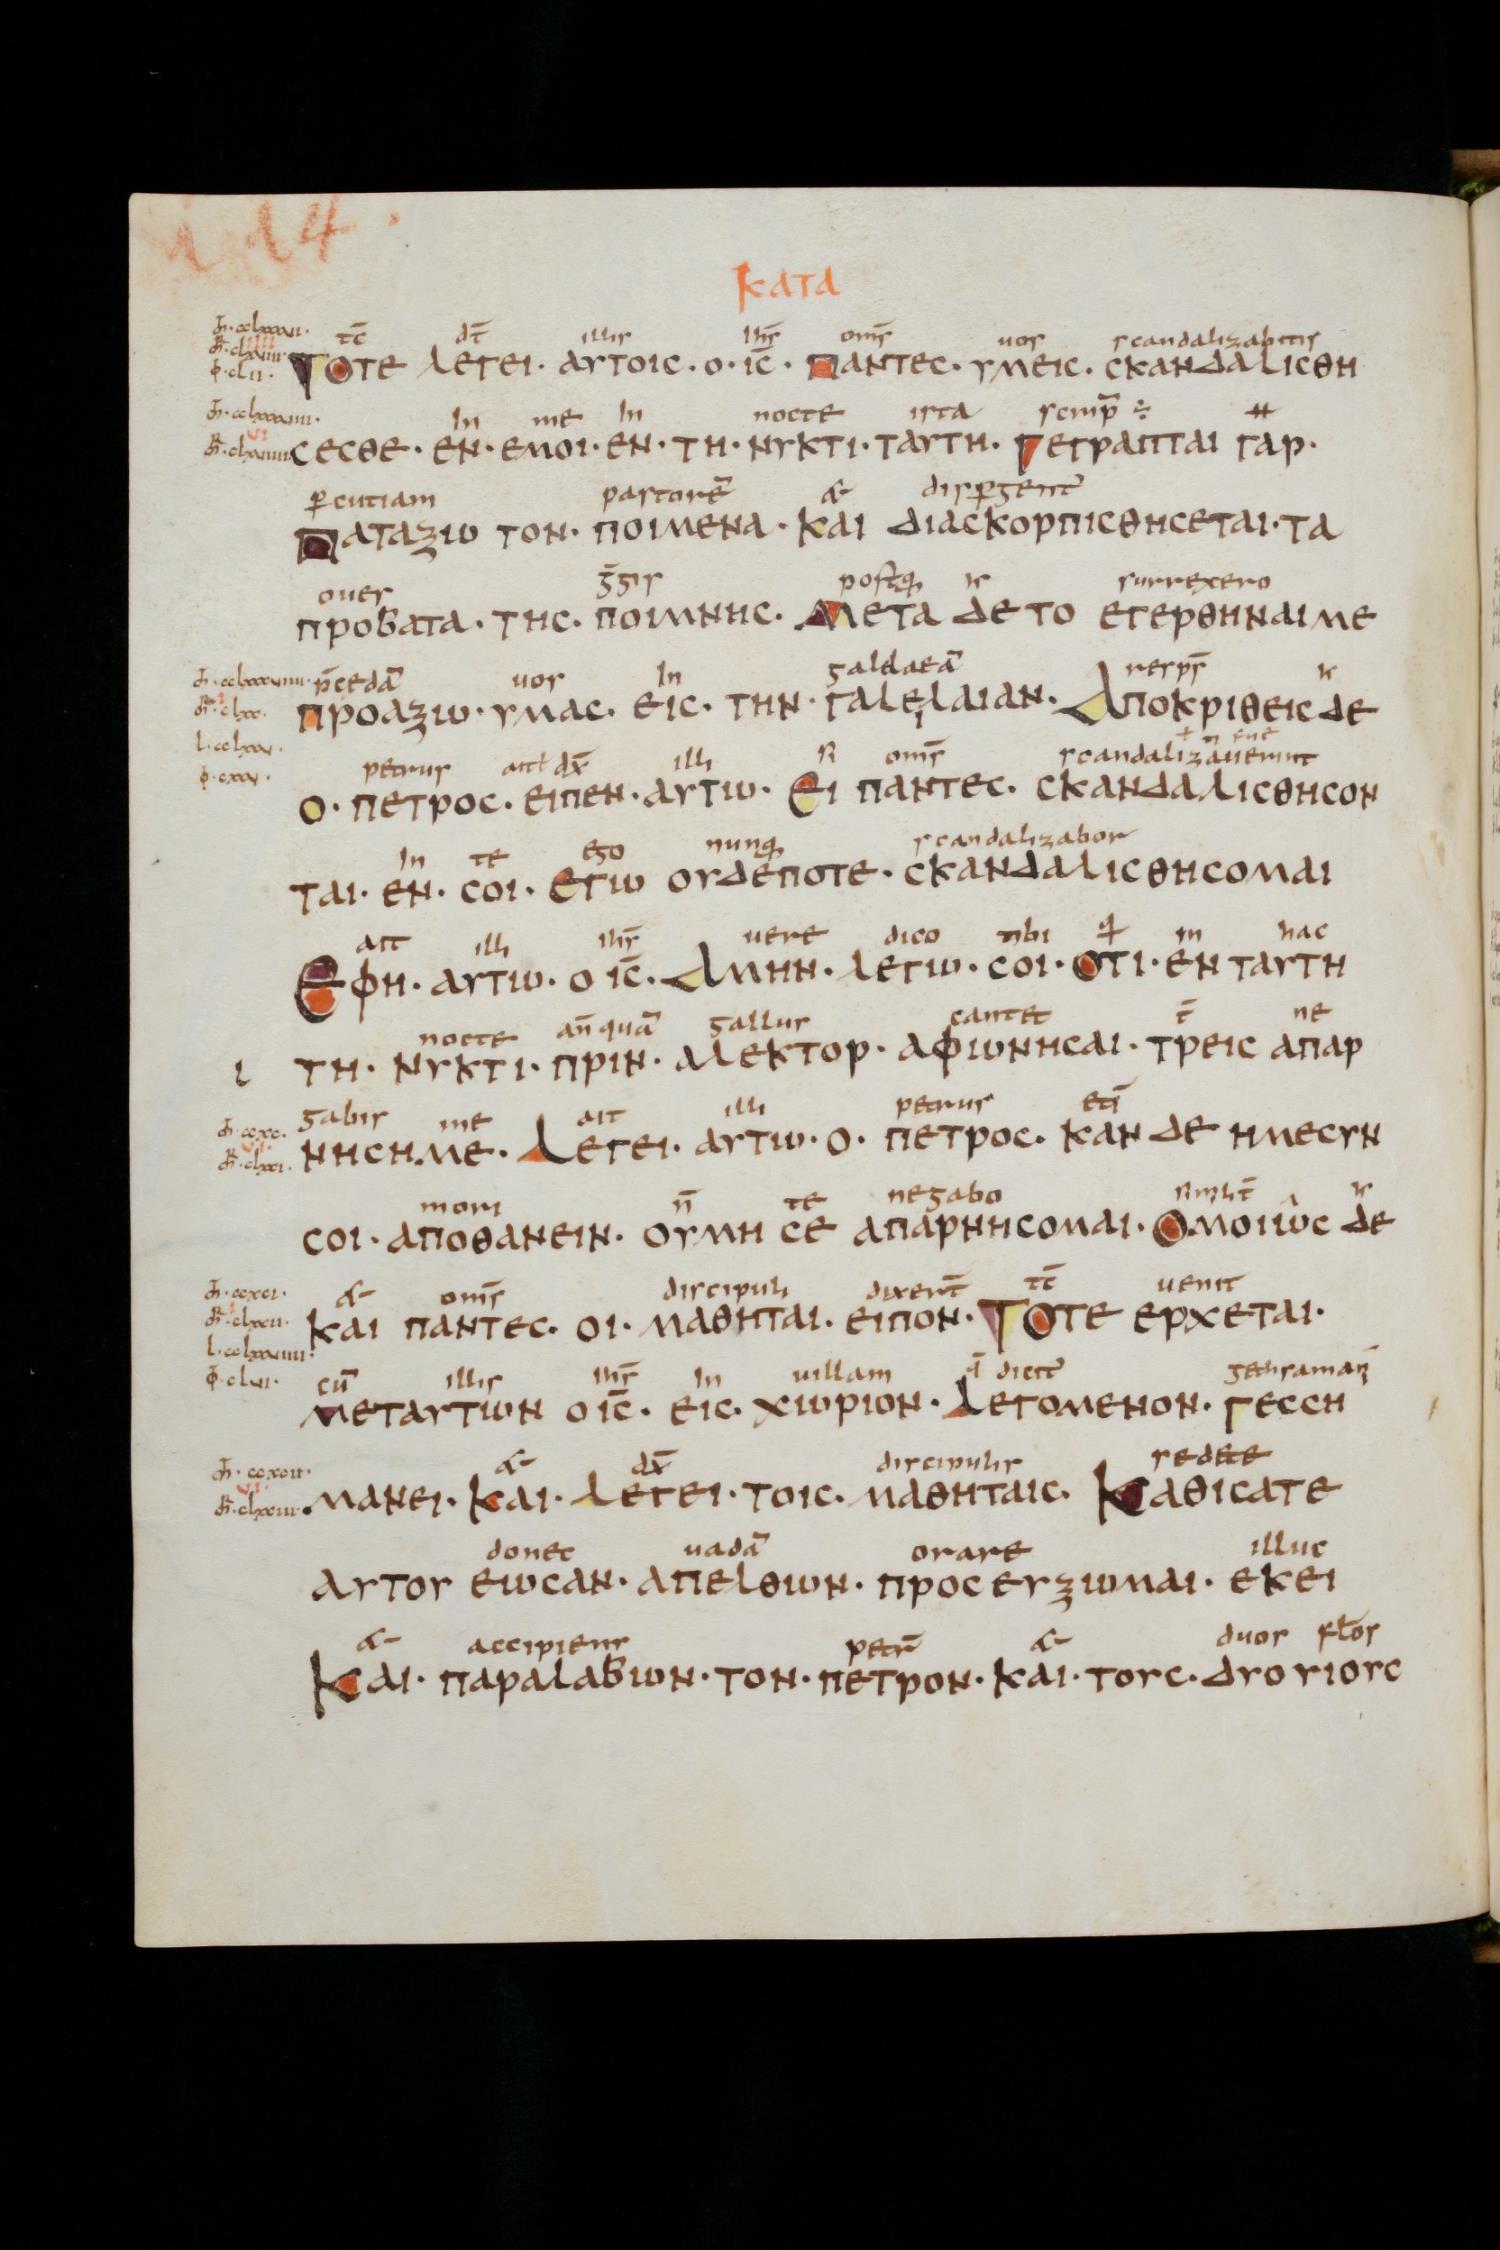 114.
ΚΑΤΑ
tc̄ dt̄ illis ih̄s om̄s uos scandalizabitis
ΤΟΤΕ ΛΕΓΕΙ· ΑΥΤΟΙC· Ο· ΙC̄· ΠΑΝΤΕC· ΥΜΕΙC· CΚΑΝΔΑΛΙCΘΗ
In me In nocte ista scrip̄ ÷
CΕCΘΕ· ΕΝ· ΕΜΟΙ· ΕΝ· ΤΗ· ΝΥΚΤΙ· ΤΑΥΤΗ· ΓΕΓΡΑΠΤΑΙ ΓΑΡ·
ꝑcutiam pastorē & disꝑgent᷑
ΠΑΤΑΞΩ ΤΟΝ· ΠΟΙΜΕΝΑ· ΚΑΙ ΔΙΑCΚΟΡΠΙCΘΗCΕΤΑΙ· ΤΑ
oues ḡgis postꝗ surrexero
ΠΡΟΒΑΤΑ· ΤΗC· ΠΟΙΜΝΗC· ΜΕΤΑ ΔΕ ΤΟ ΕΓΕΡΘΗΝΑΙ ΜΕ
p̄cedā uos In galilaeā resps̄
ΠΡΟΑΞΩ· ΥΜΑC· ΕΙC· ΤΗΝ· ΓΑLΕLΑΙΑΝ· ΑΠΟΚΡΙΘΕΙC ΔΕ
petrus ait ł dx̄ illi om̄s scandalizauerint
Ο· ΠΕΤΡΟC· ΕΙΠΕΝ· ΑΥΤΩ· ΕΙ ΠΑΝΤΕC· CΚΑΝΔΑΛΙCΘΗCΟΝ
In te ego nunꝗ scandalizabor
ΤΑΙ· ΕΝ· CΟΙ· ΕΓΩ ΟΥΔΕΠΟΤΕ· CΚΑΝΔΑLΙCΘΗCΟΜΑΙ
ait illi ih̄s uere dico tibi in hac
ΕΦΗ· ΑΥΤΩ· Ο ΙC̄· ΑΜΗΝ· ΛΕΓΩ· CΟΙ· ΟΤΙ· ΕΝ ΤΑΥΤΗ
nocte an̄quā gallus cantet t̄ ne
ΤΗ· ΝΥΚΤΙ· ΠΡΙΝ· ΑΛΕΚΤΟΡ· ΑΦΩΝΗCΑΙ· ΤΡΕΙC ΑΠΑΡ
gabis me ait illi petrus eti̅
ΝΗCΗ ΜΕ· ΛΕΓΕΙ· ΑΥΤΩ· Ο· ΠΕΤΡΟC· ΚΑΝ ΔΕ ΗΜΕCΥΝ
mori n̄ te negabo similit̄
CΟΙ· ΑΠΟΘΑΝΕΙΝ· ΟΥΜΗ CΕ ΑΠΑΡΝΗCΟΜΑΙ· ΟΜΟΙΩC ΔΕ
& om̄s discipuli dixert̄ tc̄ uenit
ΚΑΙ ΠΑΝΤΕC· ΟΙ· ΜΑΘΗΤΑΙ· ΕΙΠΟΝ· ΤΟΤΕ ΕΡΧΕΤΑΙ·
cū illis ih̄s In uillam dicit᷑ gethsamani
ΜΕΤΑΥΤΩΝ Ο ΙC̄· ΕΙC· ΧΩΡΙΟΝ· ΛΕΓΟΜΕΝΟΝ· ΓΕCCΗ
& dx̄ discipulis sedete
ΜΑΝΕΙ· ΚΑΙ· ΛΕΓΕΙ· ΤΟΙC· ΜΑΘΗΤΑΙC· ΚΑΘΙCΑΤΕ
donec uadā orare illuc
ΑΥΤΟΥ ΕΩCΑΝ· ΑΠΕLΘΩΝ· ΠΡΟCΕΥΞΩΜΑΙ· ΕΚΕΙ
& accipiens petr̄ & duos
ΚΑΙ· ΠΑΡΑLΑΒΩΝ· ΤΟΝ· ΠΕΤΡΟΝ· ΚΑΙ· ΤΟΥC· ΔΥΟ ΥΙΟΥC